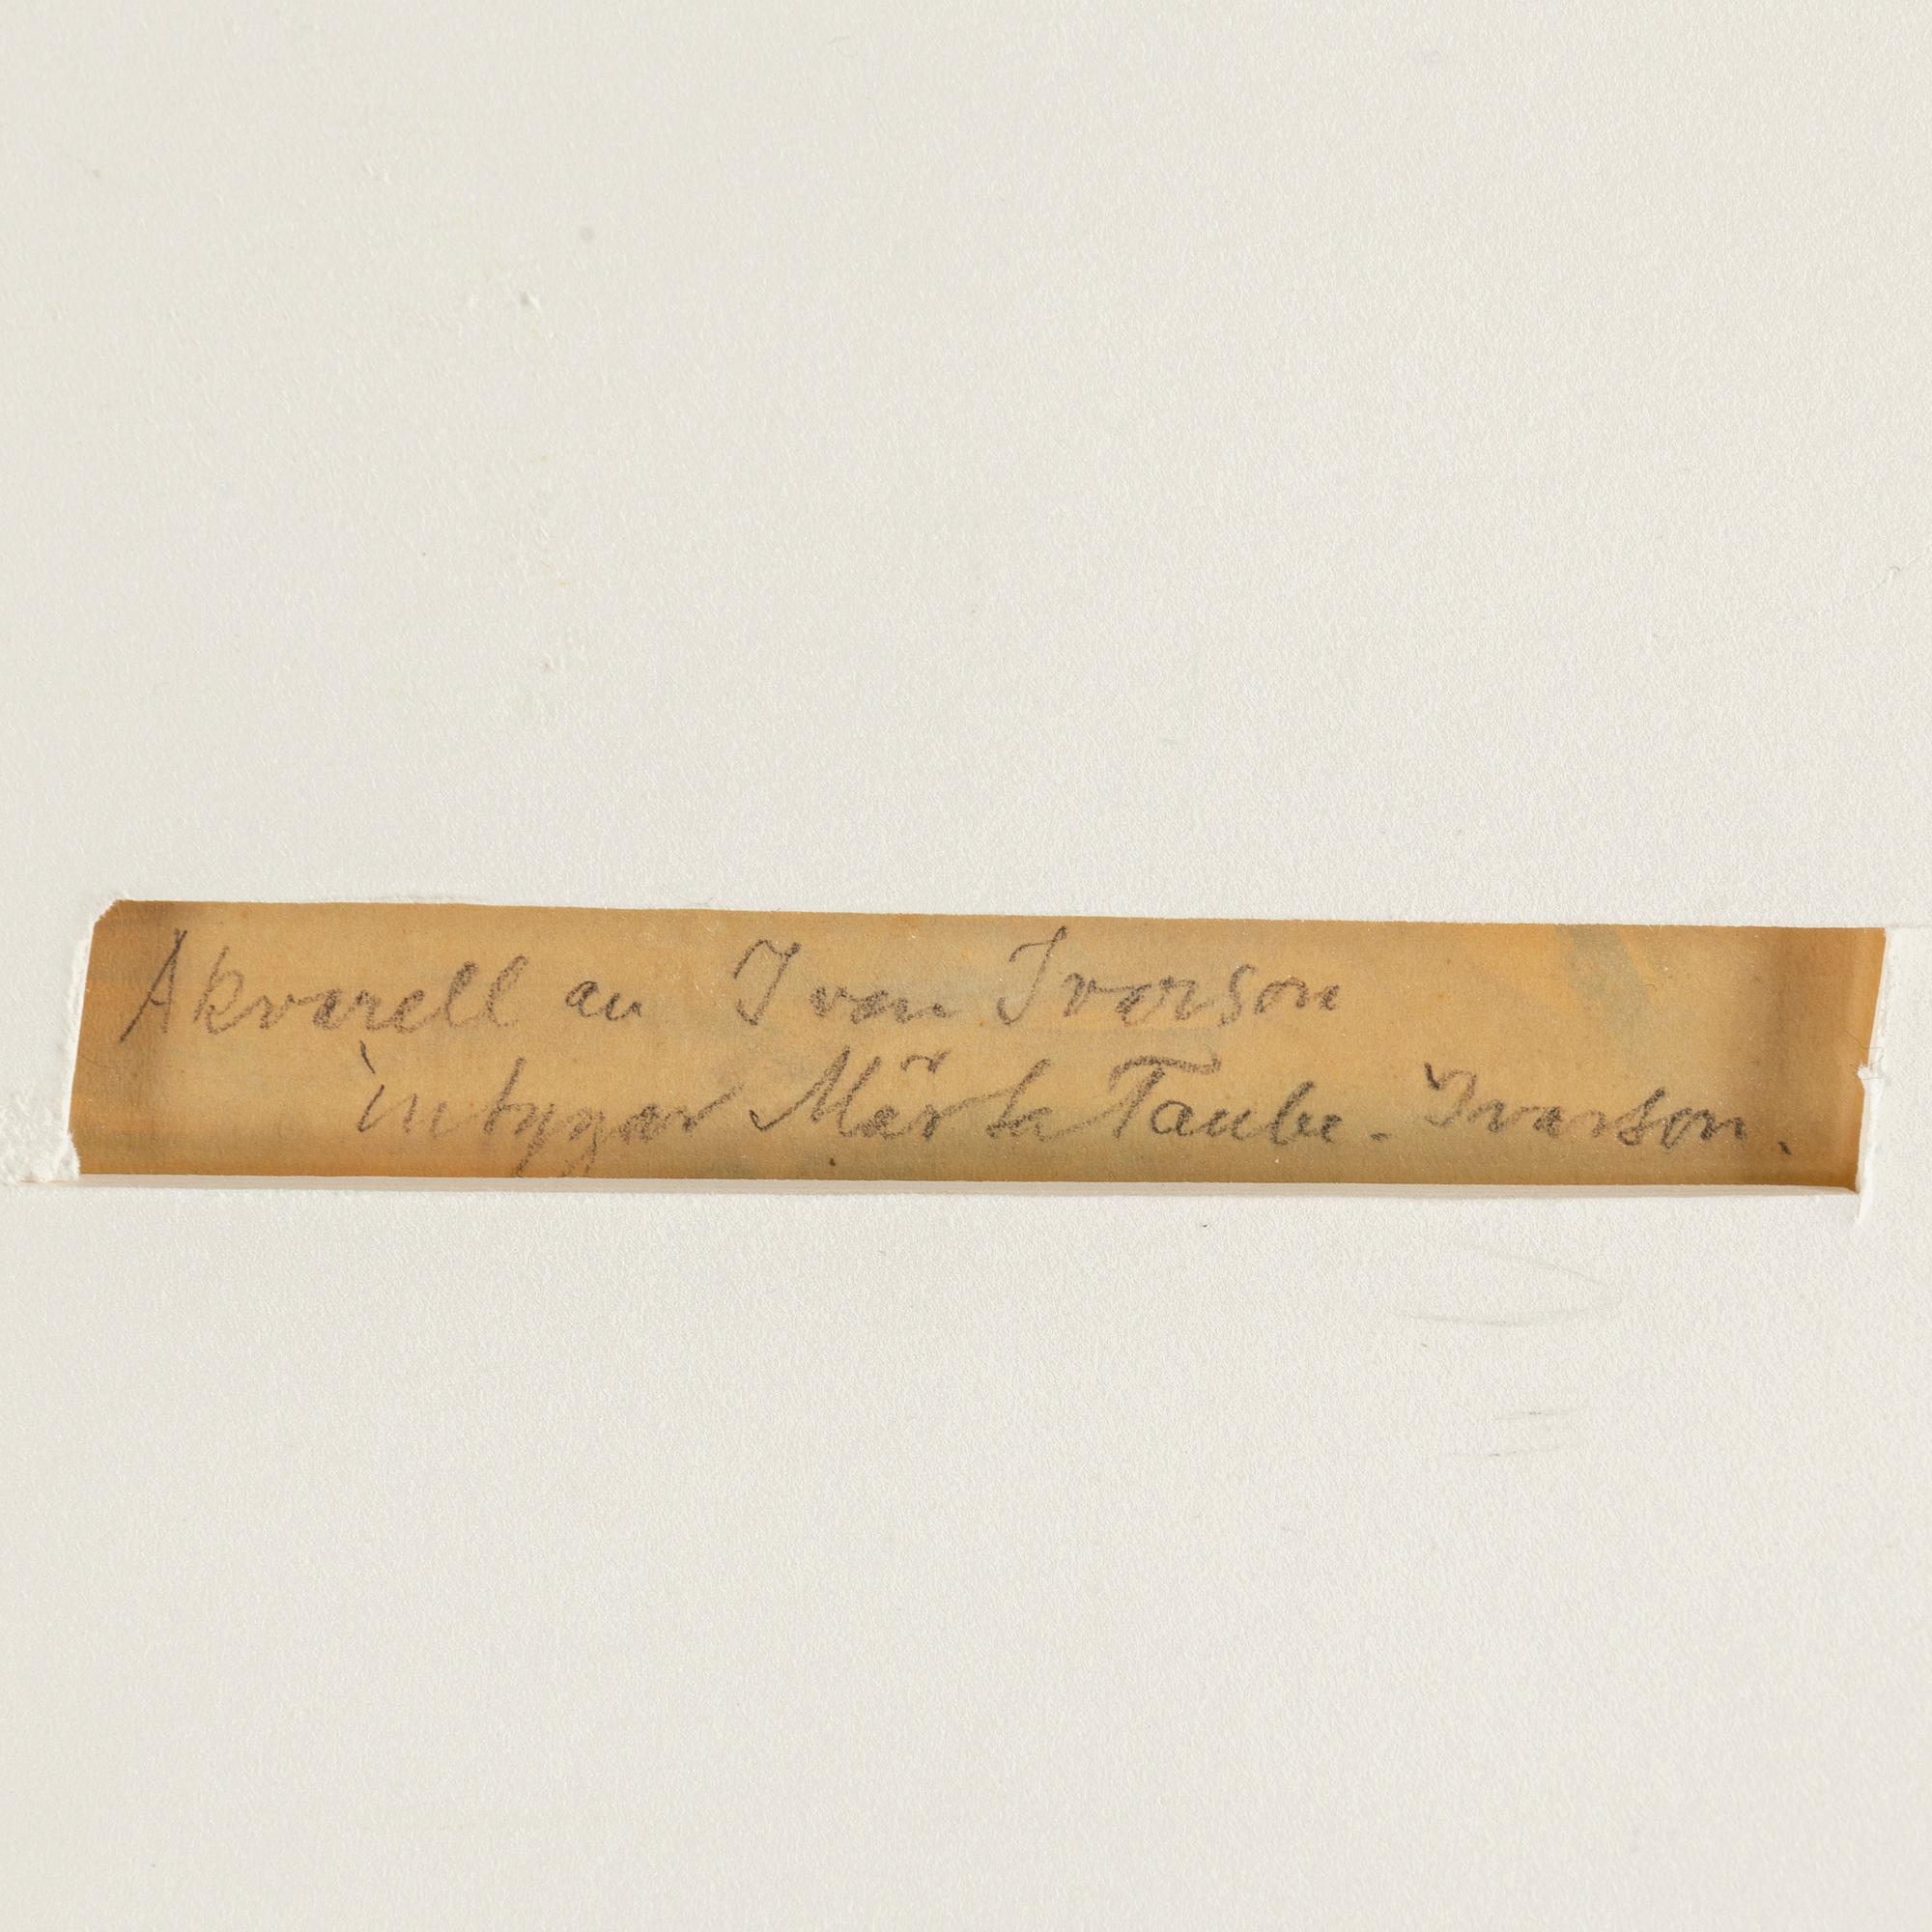 Akvarell av Ivan Ivarson
intygar Märta Taube-Ivarson.